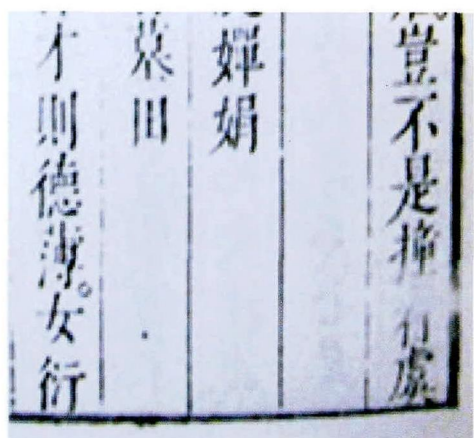 豈不是撞處
嬋娟
田
才則德薄。女衍